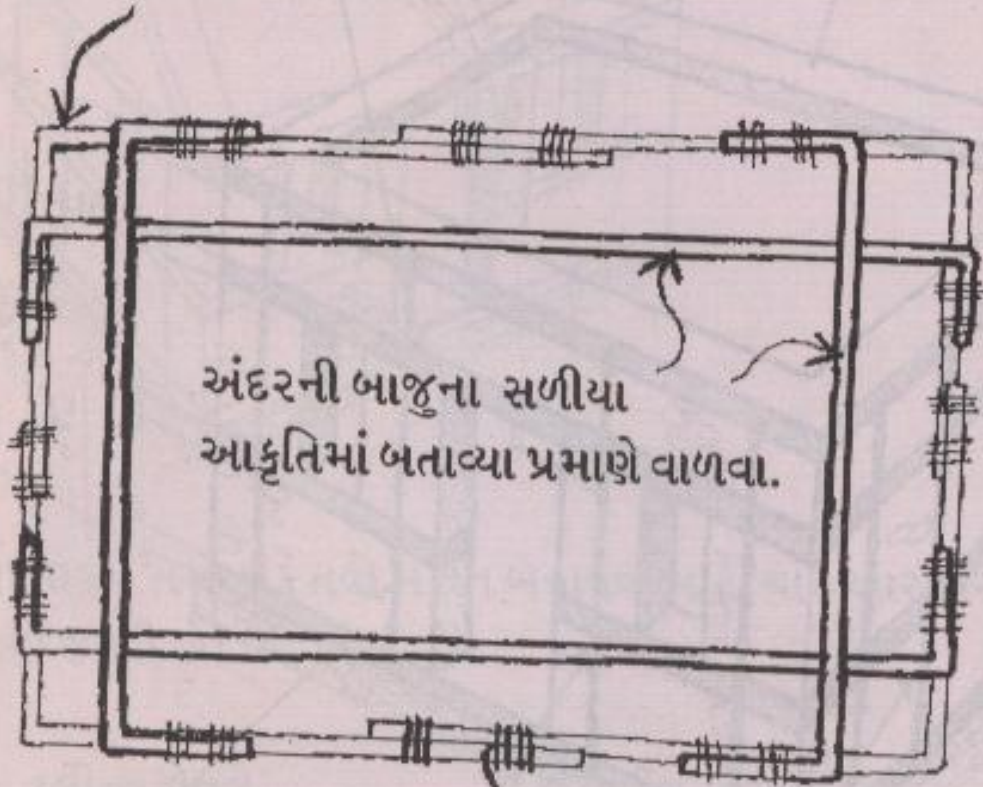 અંદરની બાજુના સળીયા
આકૃતિમાં બતાવ્યા પ્રમાણે વાળવા.